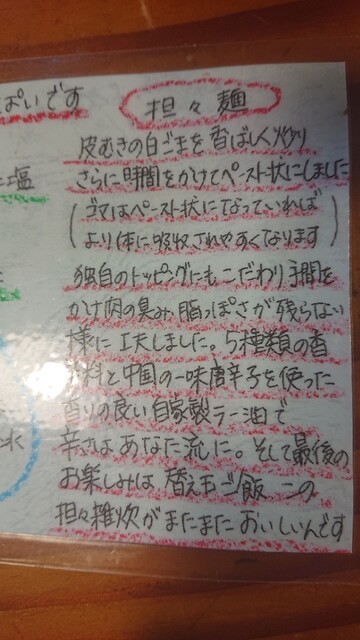 ぱいです
担々麺
塩
水
皮むきの白ごまを香ばしく炒り
さらに時間をかけてペースト状にしました
(ゴマはペースト状になっていれば
より体に吸収されやすくなります)
独自のトッピングにもこだわり手間を
かけ肉の臭み脂っぽさが残らない
様に工夫しました。5種類の香
辛料と中国の一味唐辛子を使った
香りの良い自家製ラー油で
辛さはあなた流に。そして最後の
お楽しみは 替え玉ご飯 この
担々雑炊がまたまたおいしいんです